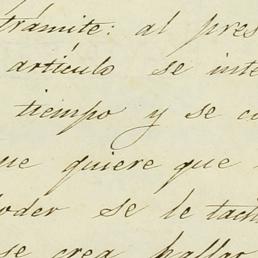 trámite: al pres
artículo se inte
tiempo y se co
ue quiere que
poder se le tach
se crea hallar